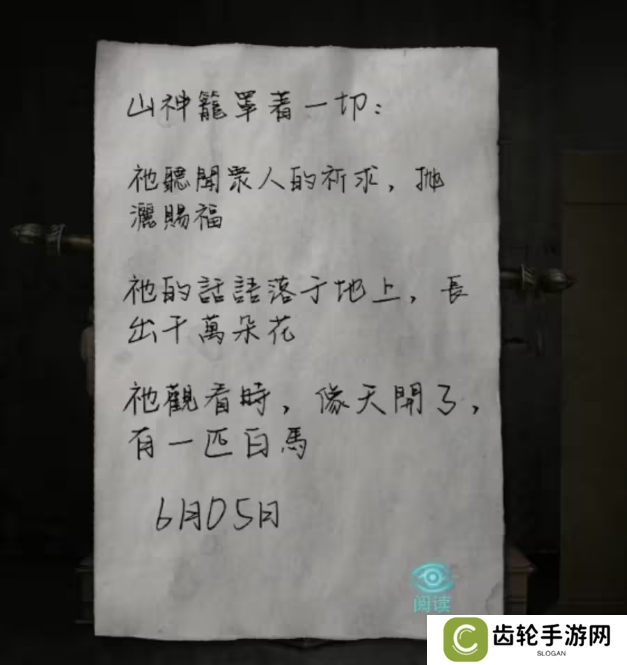 山神籠罩着一切:
祂聽聞眾人的祈求，拋
灑賜福
祂的話語落于地上，長
出千萬朵花
祂觀看時，像天開了，
有一匹白馬
6月05日
阅读
齿轮手游网
SLOGAN